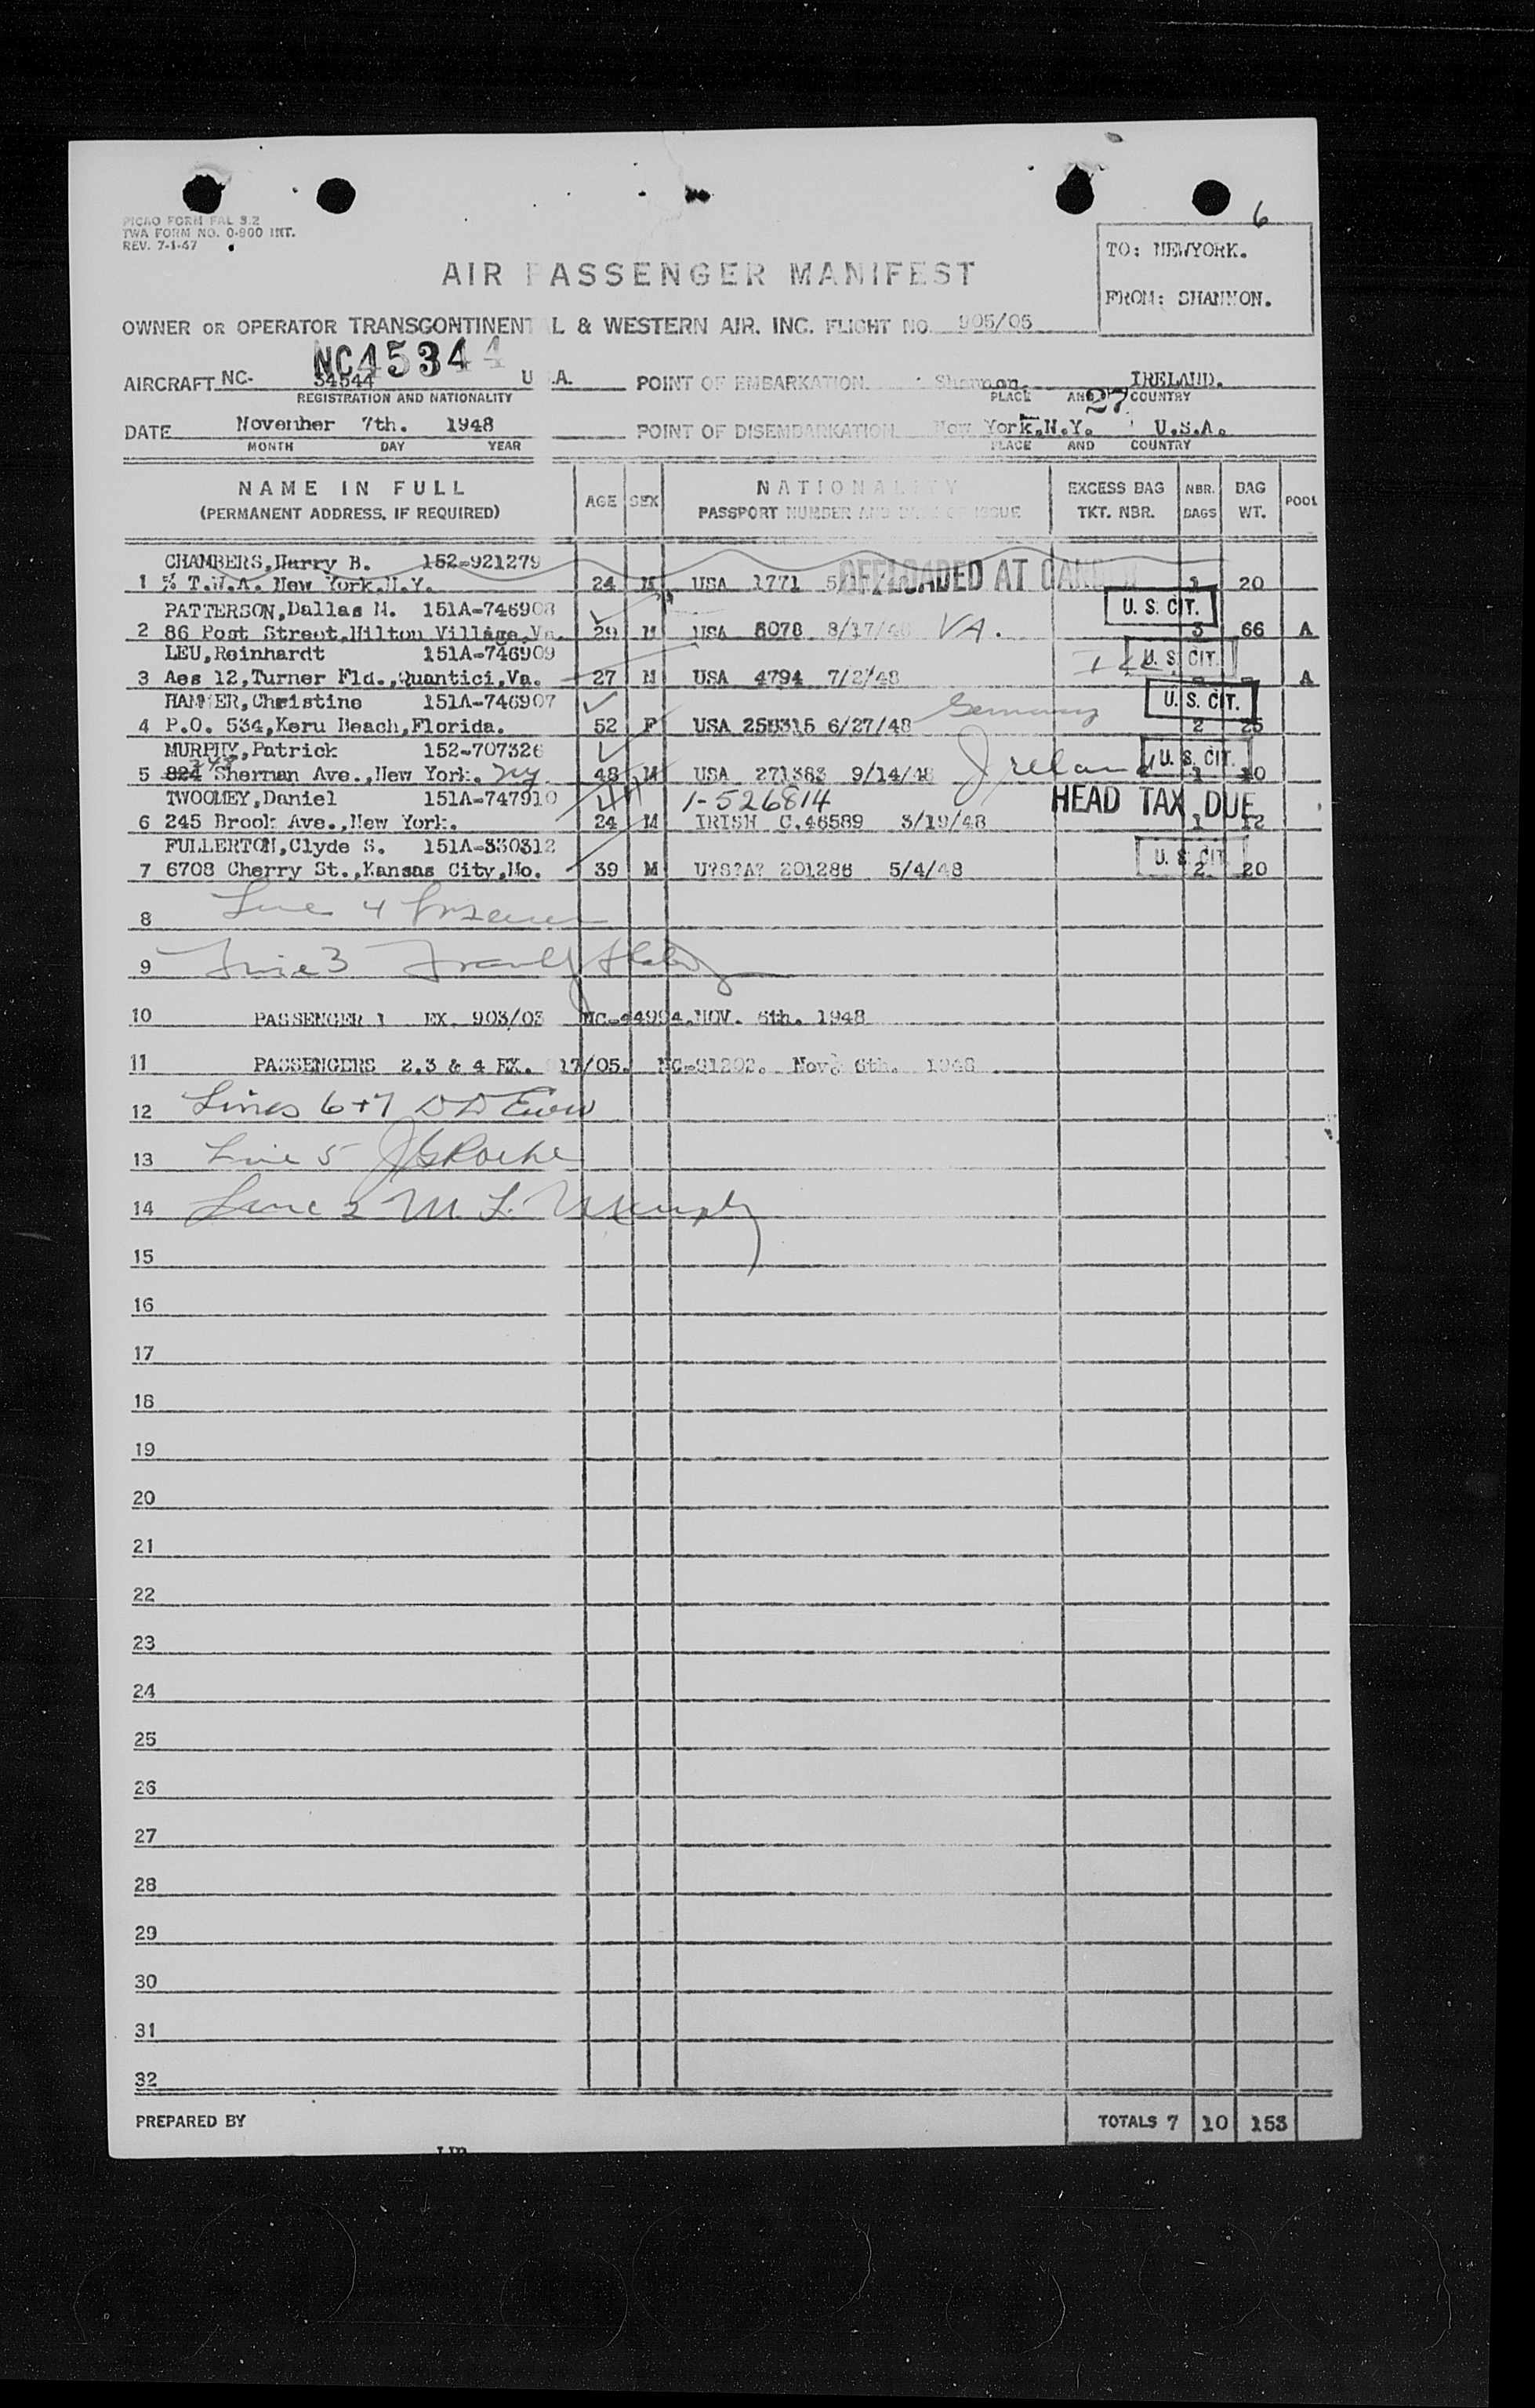 6
PICAO FORM FAL 3.2
TWA FORM NO. 0-900 INT.
REV. 7-1-47
TO: NEWYORK.
FROM: SHANNON.
AIR PASSENGER MANIFEST
OWNER OR OPERATOR TRANSCONTINENTAL & WESTERN AIR. INC. FLIGHT NO. 905/05
NC45344
AIRCRAFT NC- 54544 U A. POINT OF EMBARKATION Shannon. IRELAND.
REGISTRATION AND NATIONALITY PLACE AND COUNTRY
27
DATE November 7th. 1948 POINT OF DISEMBARKATION New York.N.Y. U.S.A.
MONTH DAY YEAR PLACE AND COUNTRY
NAME IN FULL AGE SEX NATIONALITY EXCESS BAG NBR. BAG POOL
(PERMANENT ADDRESS, IF REQUIRED) PASSPORT NUMBER AND DATE OF ISSUE TKT. NBR. BAGS WT.
CHAMBERS,Harry B. 152-921279
OFFLOADED AT
1 % T.W.A. New York.N.Y. 24 M USA 1771 1 20
PATTERSON,Dallas M. 151A-746908 U. S. CIT.
2 86 Post Street,Hilton Village,Va. 29 M USA 8078 8/17/48 VA. 3 66 A
LEU,Reinhardt 151A-746909 U. S. CIT.
3 Aes 12,Turner Fld.,Quantici,Va. 27 M USA 4794 7/2/48 A
HAMMER,Christine 151A-746907 U. S. CIT.
4 P.O. 534,Keru Beach,Florida. 52 F USA 255315 6/27/48 Germany 2 25
MURPHY,Patrick 152-707326 U. S. CIT.
5 824 Sherman Ave.,New York. NY. 48 M USA 271383 9/14/48 Ireland 1 10
TWOOMEY,Daniel 151A-747910 44 1-526814 HEAD TAX DUE
6 245 Brook Ave.,New York. 24 M IRISH C.46589 3/19/48 1 12
FULLERTON,Clyde S. 151A-330312 U. S. CIT.
7 6708 Cherry St.,Kansas City,Mo. 39 M U?S?A? 201286 5/4/48 2 20
8 Line 4
9 Line 3
10 PASSENGER 1 EX 903/03 NC-44994.NOV. 6th. 1948
11 PASSENGERS 2,3 & 4 EX. 17/05. NC-91202. Nov. 6th. 1948
12 Lines 6+7
13 Line 5 JG Roche
14 Line 2 M. L. Murphy
15
16
17
18
19
20
21
22
23
24
25
26
27
28
29
30
31
32
PREPARED BY TOTALS 7 10 153